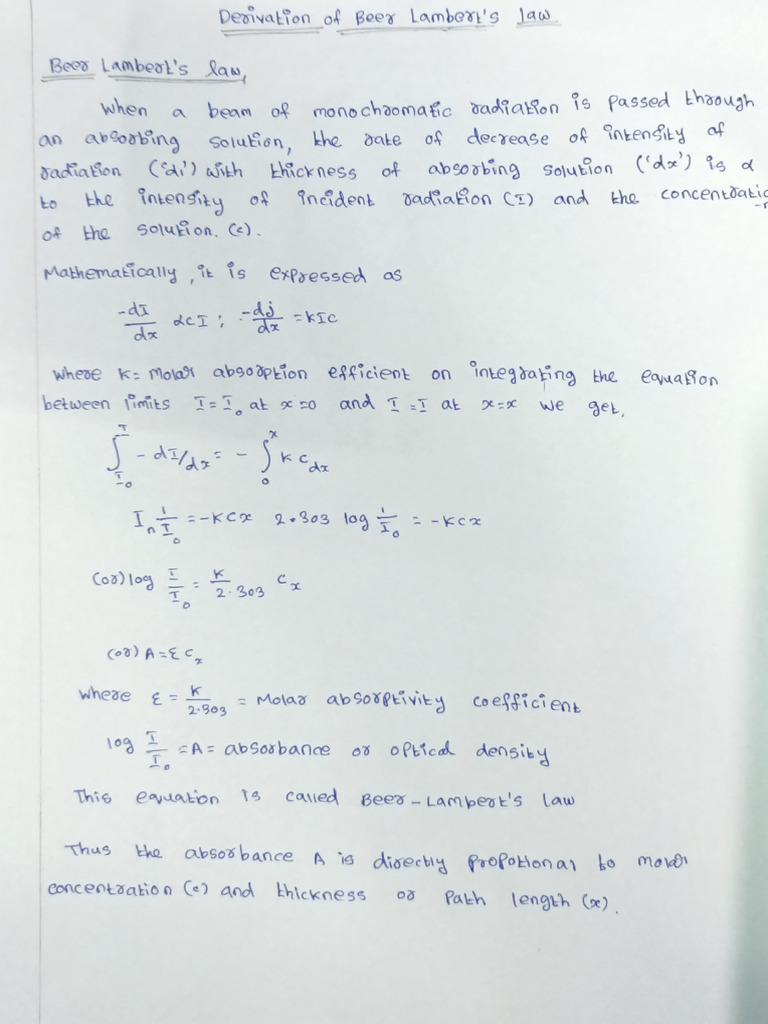 Derivation of Beer Lambert's law
Beer Lambert's law,
When a beam of monochromatic radiation is passed through
an absorbing solution, the rate of decrease of intensity of
radiation ('di') with thickness of absorbing solution ('dx') is α
to the intensity of incident radiation (I) and the concentratio
-n
of the solution. (c).
Mathematically, it is expressed as
-dI/dx αcI ; -dj/dx = kIc
where K= Molar absorption efficient on integrating the equation
between limits I=I₀ at x=0 and I=I at x=x we get,
∫_{I₀}^{I} - dI/dx = - ∫_{0}^{x} k c dx
In 1/I₀ = -KCx 2.303 log 1/I₀ = -KCx
(or) log I/I₀ = K/2.303 Cx
(or) A = εCx
where ε = K/2.303 = Molar absorptivity coefficient
log I/I₀ = A = absorbance or optical density
This equation is called Beer-Lambert's law
Thus the absorbance A is directly propotional to molar
concentration (c) and thickness or Path length (x).